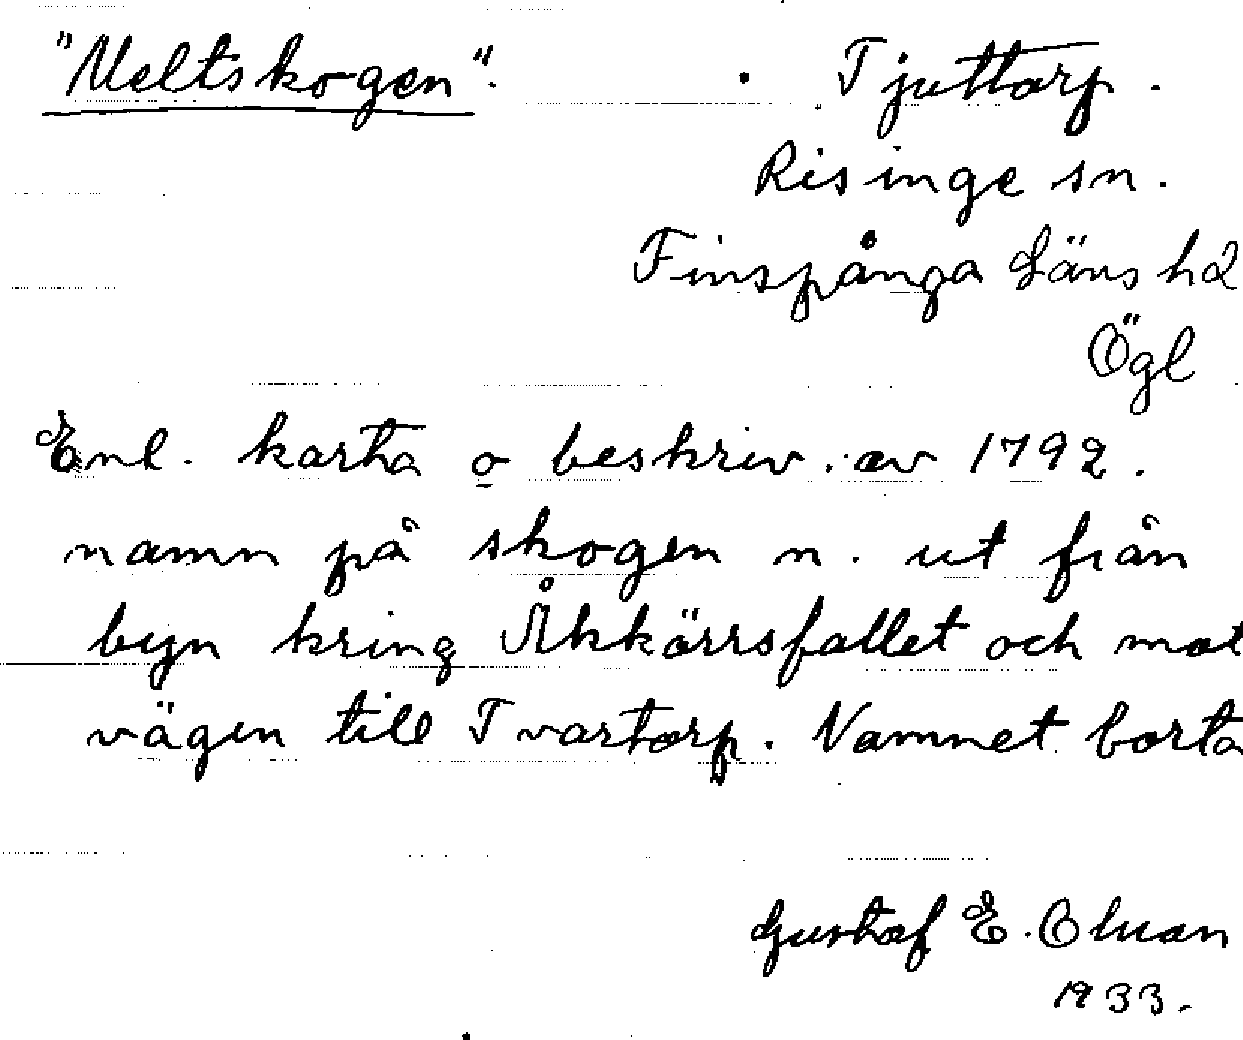 "Meltskogen". Tjuttorp.
Risinge sn.
Finspånga Läns hd
Ögl
Enl. karta o beskriv. av 1792.
namn på skogen n. ut från
byn kring Åkkärrsfallet och mot
vägen till Tvartorp. Namnet borta
Gustaf E.
1933.